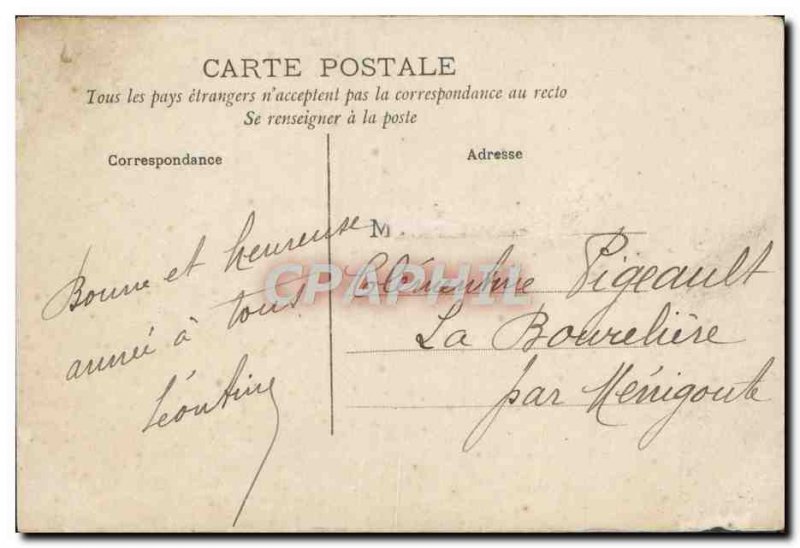 CARTE POSTALE
Tous les pays étrangers n'acceptent pas la correspondance au recto
Se renseigner à la poste
Correspondance
Adresse
Bonne et heureuse
année à tous
Léontine
M
Clémentine Pigeault
La Bourelière
par Ménigoute
CPAPHIL